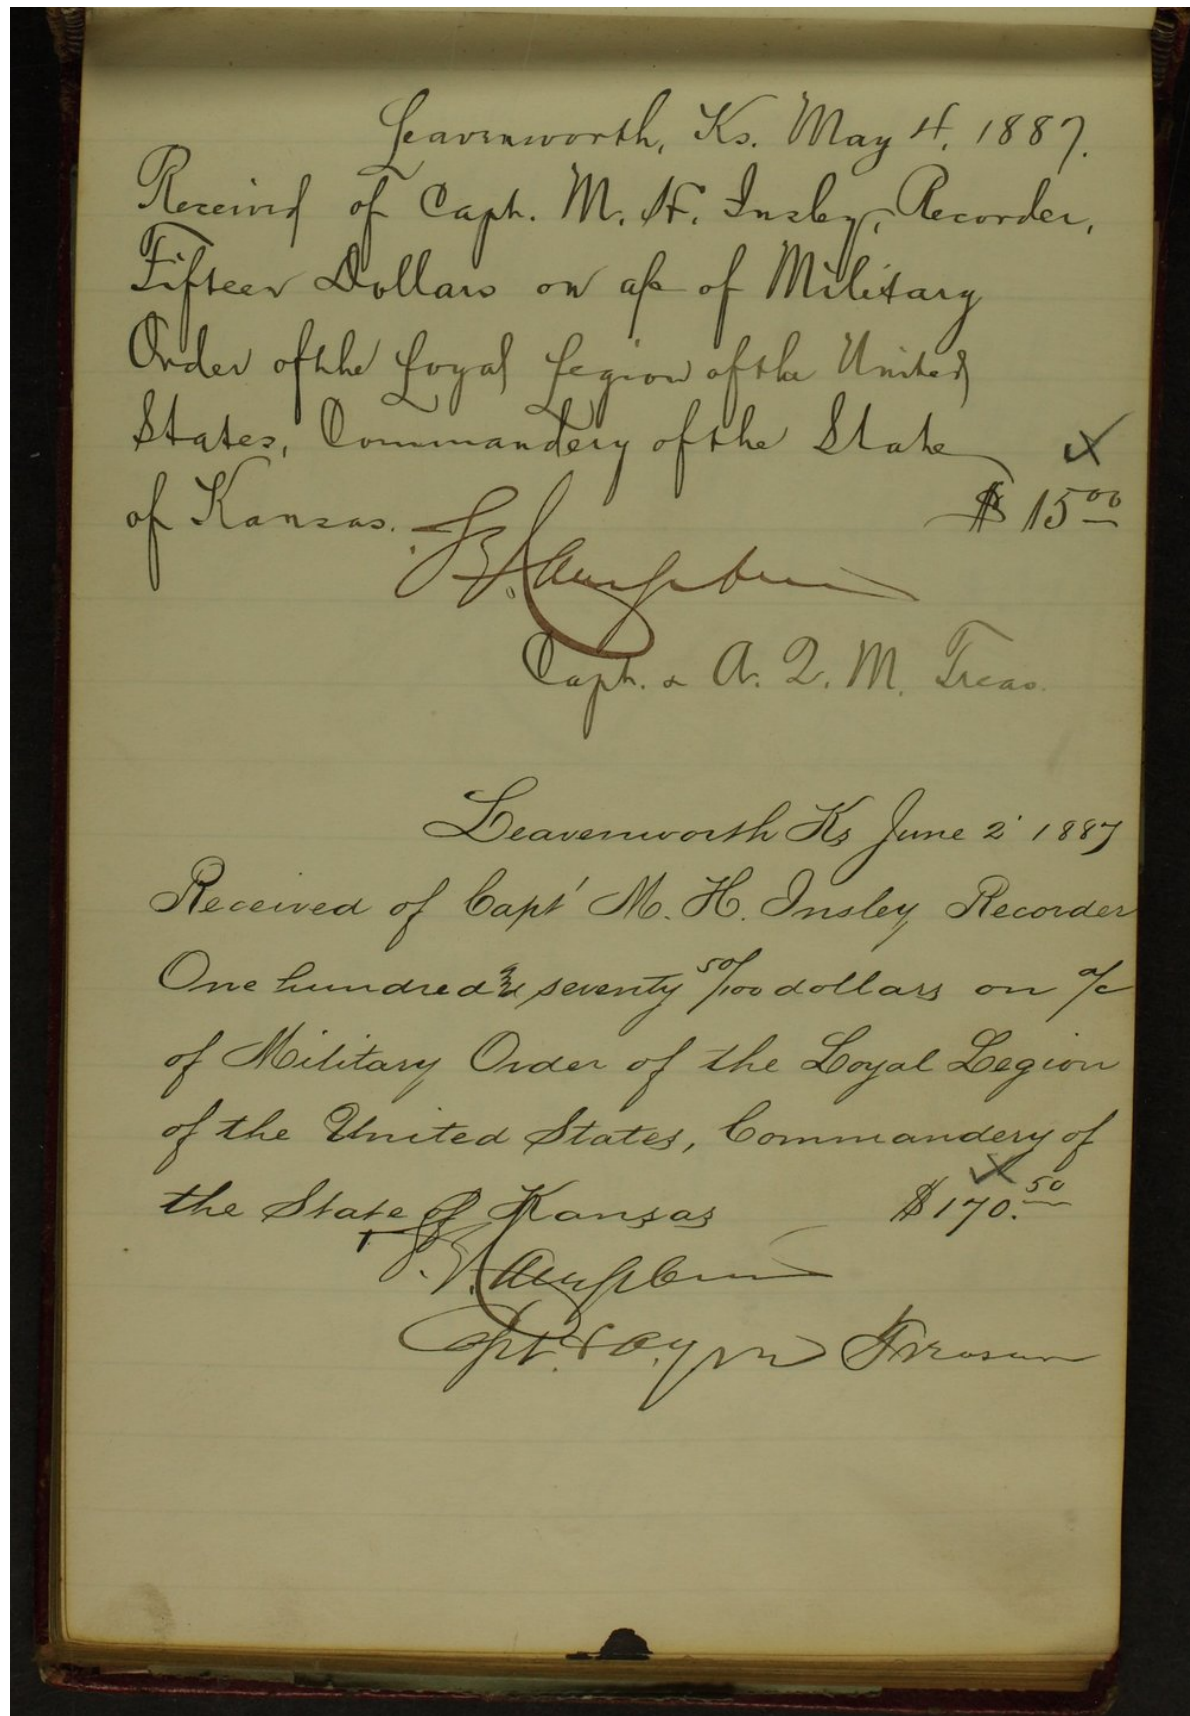 Leavenworth, Ks. May 4, 1887.
Received of Capt. M. H. Insley, Recorder,
Fifteen Dollars on a/c of Military
Order of the Loyal Legion of the United
States, Commandery of the State
of Kansas. $15 00
Capt. & A. Q. M. Treas.
Leavenworth Ks June 2 1887
Received of Capt M. H. Insley, Recorder
One hundred & seventy 50/100 dollars on a/c
of Military Order of the Loyal Legion
of the United States, Commandery of
the State of Kansas $170.50
Capt. & A. Q. M. Treasurer